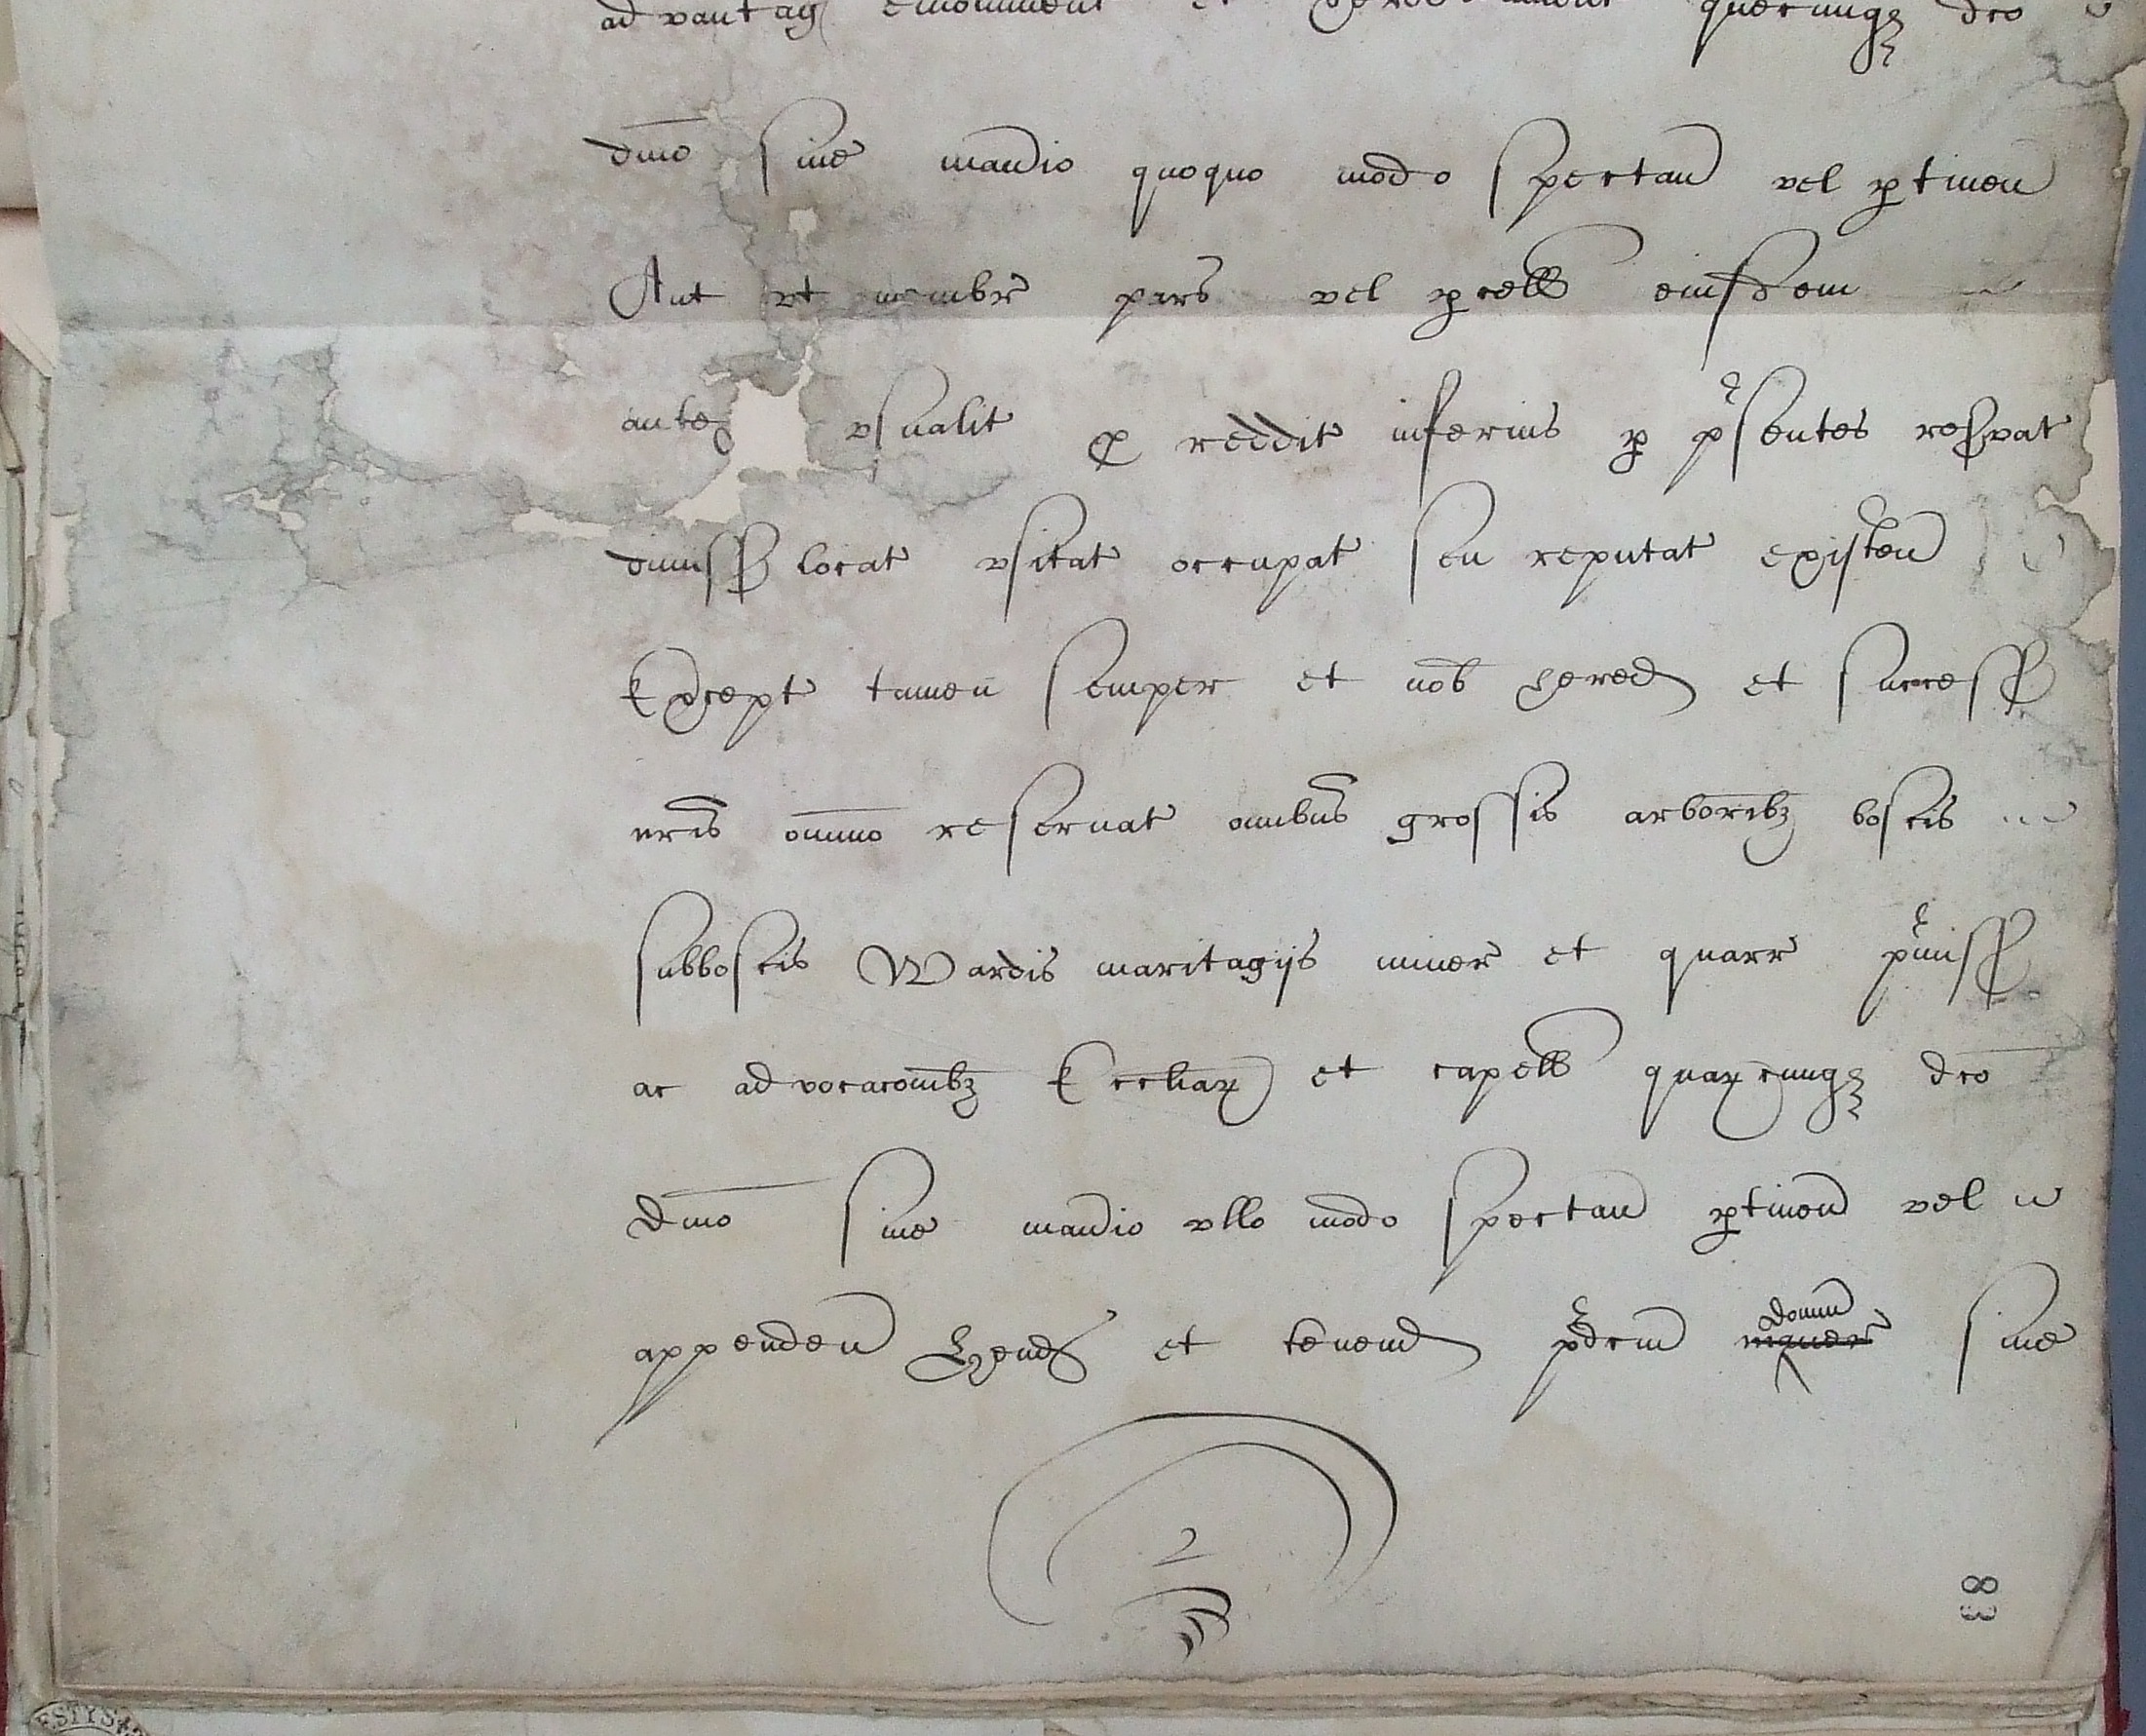 ad vantag emolument et hered quecunqȝ dco
dmo sive mandio quoquo modo spectan vel ptinen
Aut ut membr pars vel pcell eiusdem
anteq usualit p reddit inferius p psentes resvat
dimiss locat usitat occupat seu reputat existen
Except tamen semper et nob hered et success
nris omnino reservat omibus grossis arboribȝ boscis
subboscis Wardis maritagijs miner et quarr pmiss
ac advocacoinibȝ Eccliar et capell quarcunqȝ dco
dmo sive mandio ullo modo spectan ptinen vel
appenden Hend et tenend pdcm domin sive
2
38